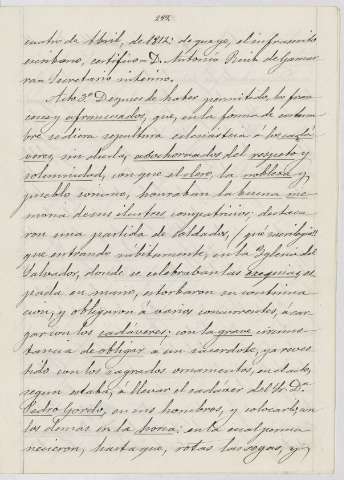 292.
cuatro de Abril, de 1812: de que yo, el infrascrito
escribano, certifico = D. Antonio Ruiz de Gamar-
ra = Secretario interino.
Acto 3º Despues de haber permitido, los fran
ceses y afrancesados, que, en la forma de costum
bre se diera sepultura eclesiastica á los cadá
veres, sin duda, abochornados del respeto y
solemnidad, con que el clero, la nobleza y
pueblo soriano, honraban la buena me-
moria de sus ilustres compatricios; destaca
ron una partida de soldados,
que entrando subitamente, en la Iglesia del
Salvador, donde se celebraban las exequias, es
pada en mano, estorbaron su continua
cion, y obligaron á varios concurrentes, á car
gar con los cadáveres; con la grave circuns-
tancia de obligar á un sacerdote, ya reves
tido con los sagrados ornamentos,
segun estaba, á llevar el cadáver del Sr. Dn.
Pedro Gordo, en sus hombros, y colocarlo, con
los demás en la horca; en la cual perma-
necieron, hasta que, rotas las sogas, y